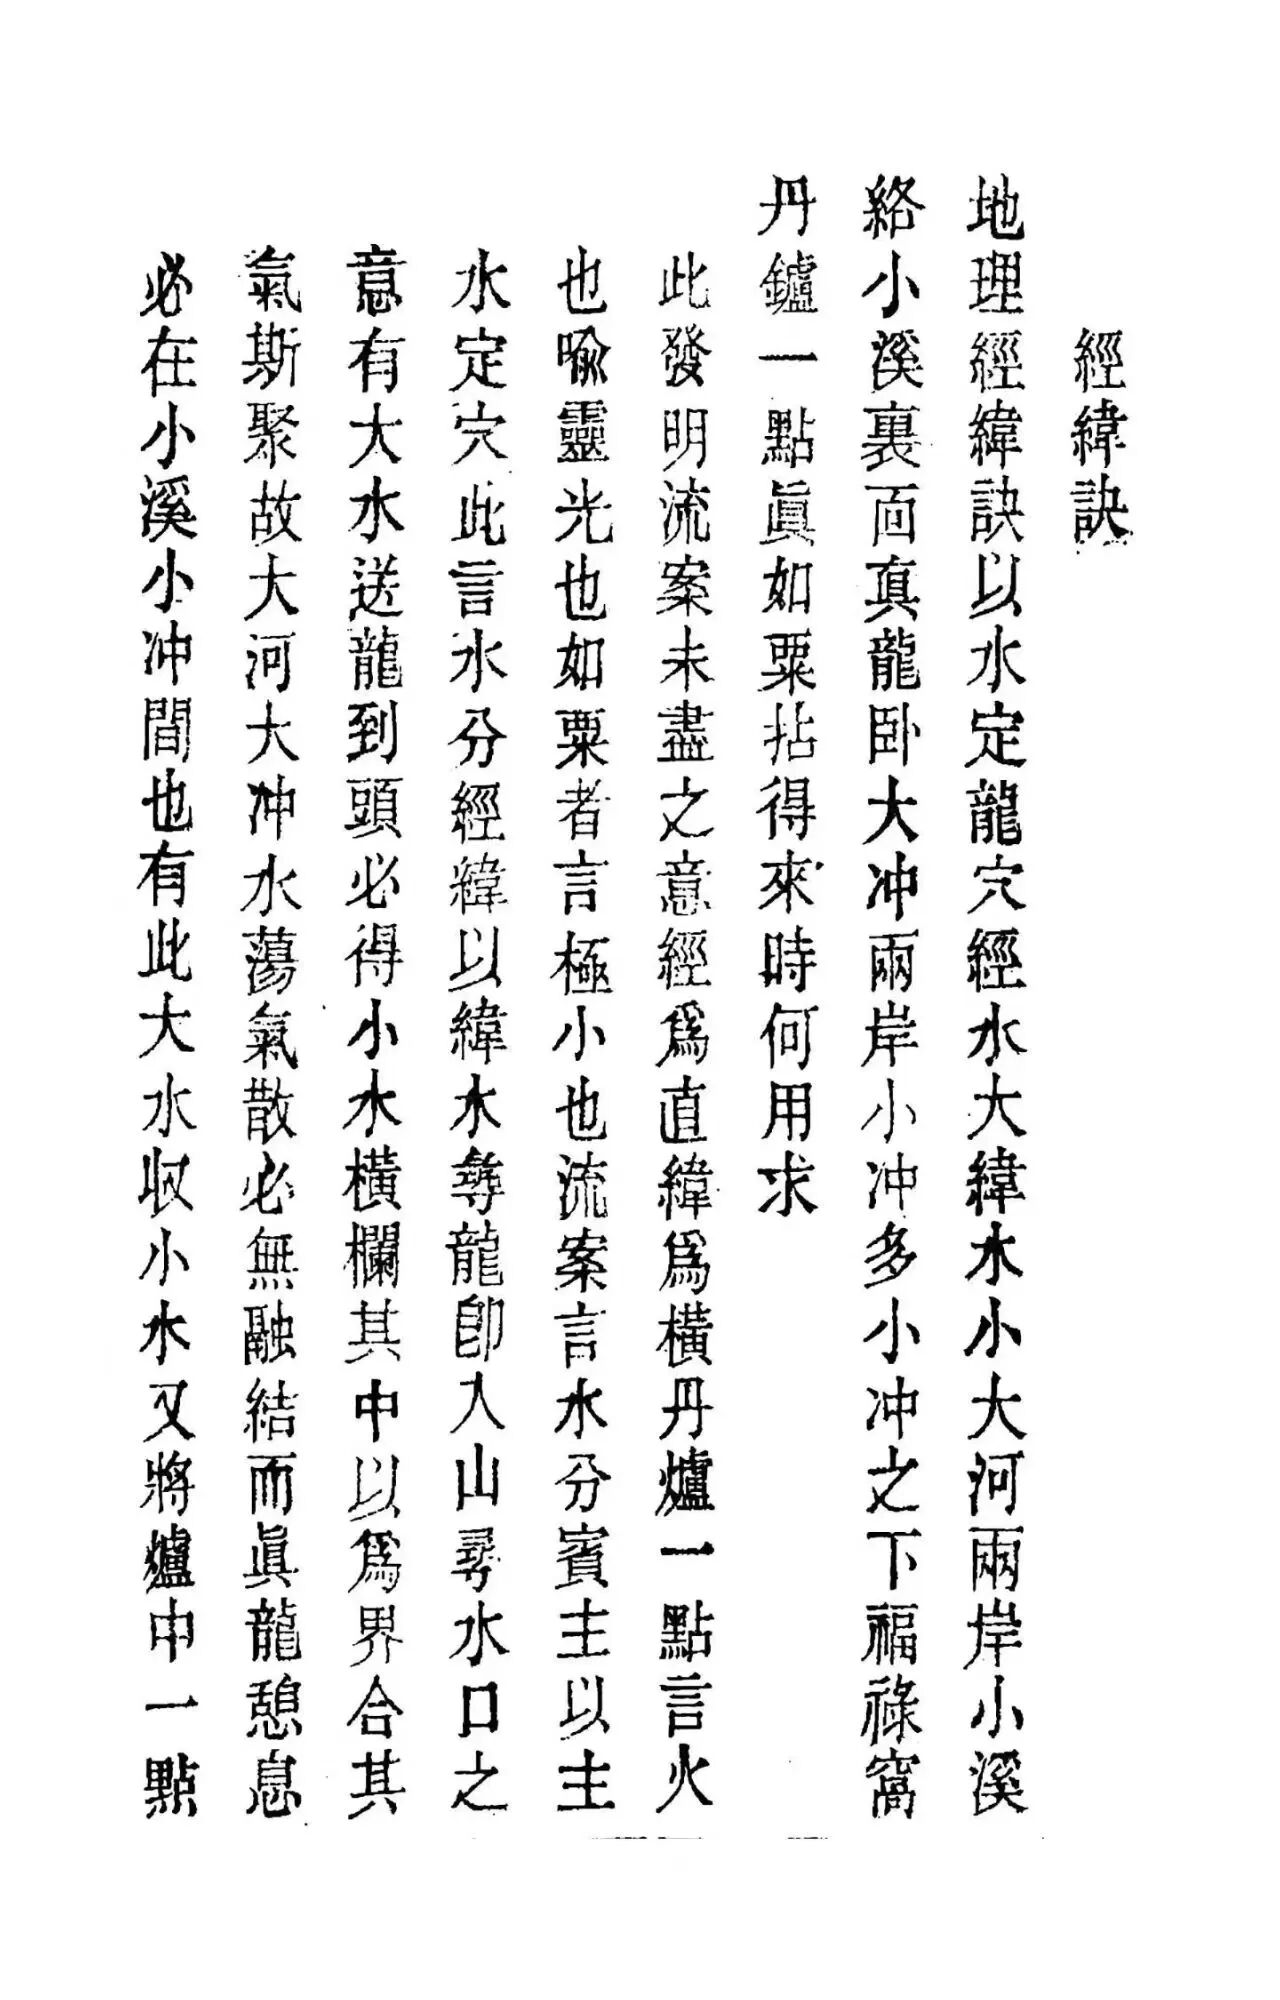 經緯訣
地理經緯訣以水定龍穴經水大緯水小大河兩岸小溪
絡小溪裏面真龍卧大冲兩岸小冲多小冲之下福祿窩
丹鑪一點眞如粟拈得來時何用求
此發明流案未盡之意經爲直緯爲橫丹爐一點言火
也喻靈光也如粟者言極小也流案言水分賓主以主
水定穴此言水分經緯以緯水尋龍卽入山尋水口之
意有大水送龍到頭必得小水橫欄其中以爲界合其
氣斯聚故大河大冲水蕩氣散必無融結而眞龍憩息
必在小溪小冲間也有此大水収小水又將爐中一點